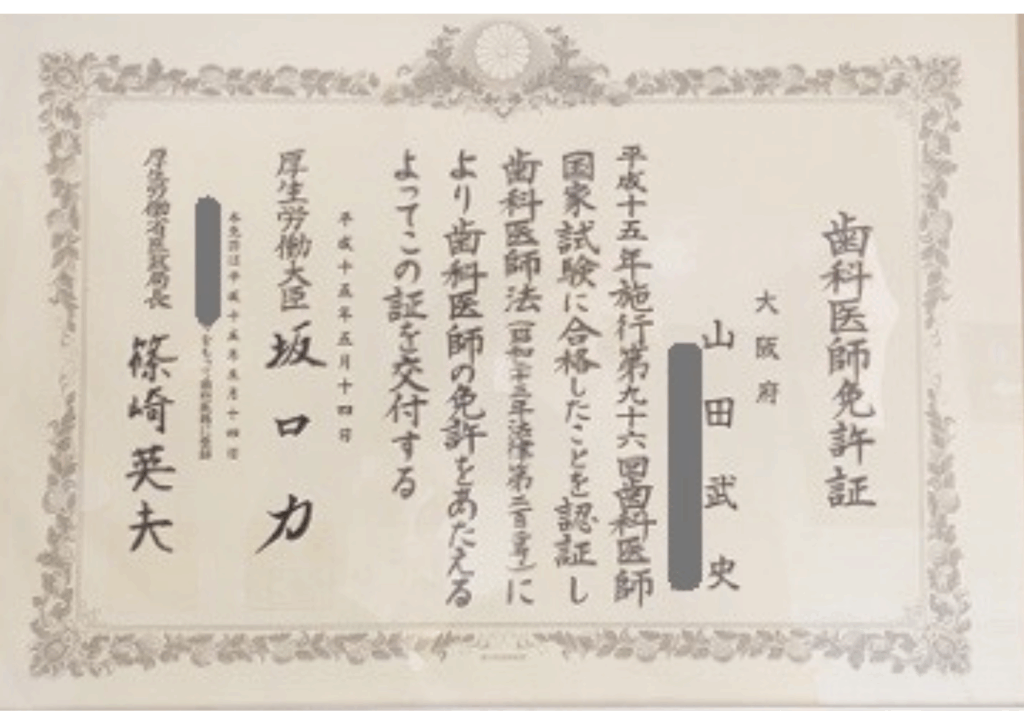 歯科医師免許証
大阪府
山田武史
平成十五年施行第九十六回歯科医師
国家試験に合格したことを認証し
歯科医師法(昭和二十三年法律第二百二号)に
より歯科医師の免許をあたえる
よってこの証を交付する
平成十五年五月十四日
厚生労働大臣 坂口力
本免許は平成十五年五月十四日
をもって歯科医籍に登録
厚生労働省医政局長 篠崎英夫